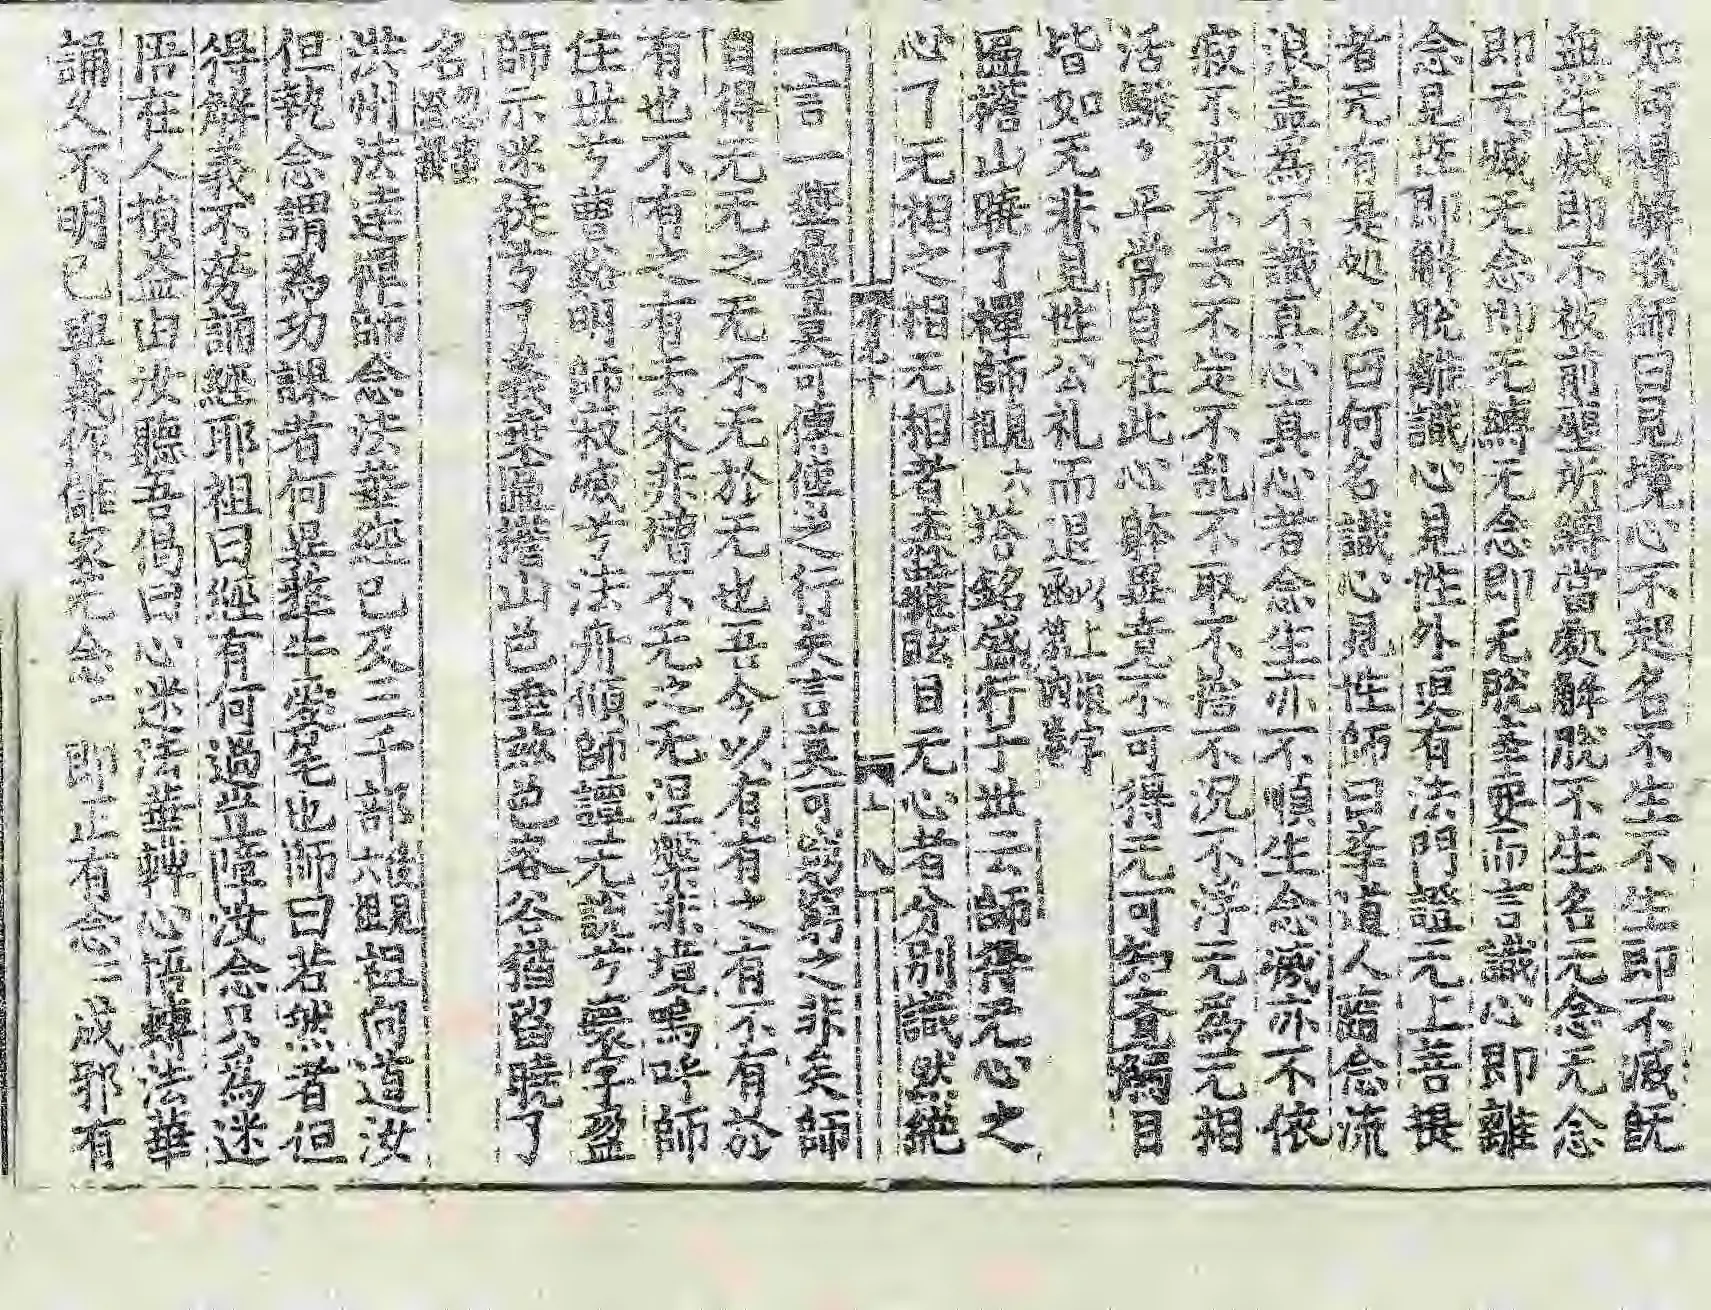 如何得解脫師曰見境心不起名不生不生即不滅既
無生滅即不被前塵所縛當處解脫不生名无念无念
即无滅无念即无縛无念即无脫率要而言識心即離
念見性即解脫離識心見性外更有法門證无上菩提
者无有是処公曰何名識心見性師曰夲道人臨念流
浪盖爲不識真心真心者念生亦不順生念滅亦不依
寂不來不去不㝎不乱不取不捨不沉不浮无爲无相
活鱍〻平常自在此心躰畢竟不可得无可知覺觸目
皆如无非見性公礼而退
匾檐山曉了禪師觀六 塔銘盛行于世云師得无心之
心了无相之相无相者森羅眩目无心者分別識熾絕
一言一響響莫可傳傳之行矣言莫可窮窮之非矣師
自得无无之无不无於无也吾今以有有之有不有於
有也不有之有去來非增不无之无涅槃非境嗚呼師
住世兮曹谿明師寂滅兮法舟傾師譚无說兮寰宇盈
師示迷徒兮了義乗匾檐山色垂兹色空谷猶留曉了
名
洪州法達禪師念法華經已及三千部後六覲祖向道汝
但執念謂爲功課者何異犛牛愛尾也師曰若然者但
得解義不勞誦經耶祖曰經有何過豈障汝念只爲迷
悟在人損益由汝聽吾偈曰心迷法華轉心悟轉法華
誦久不明己與義作讎家无念〻即正有念〻成邪有